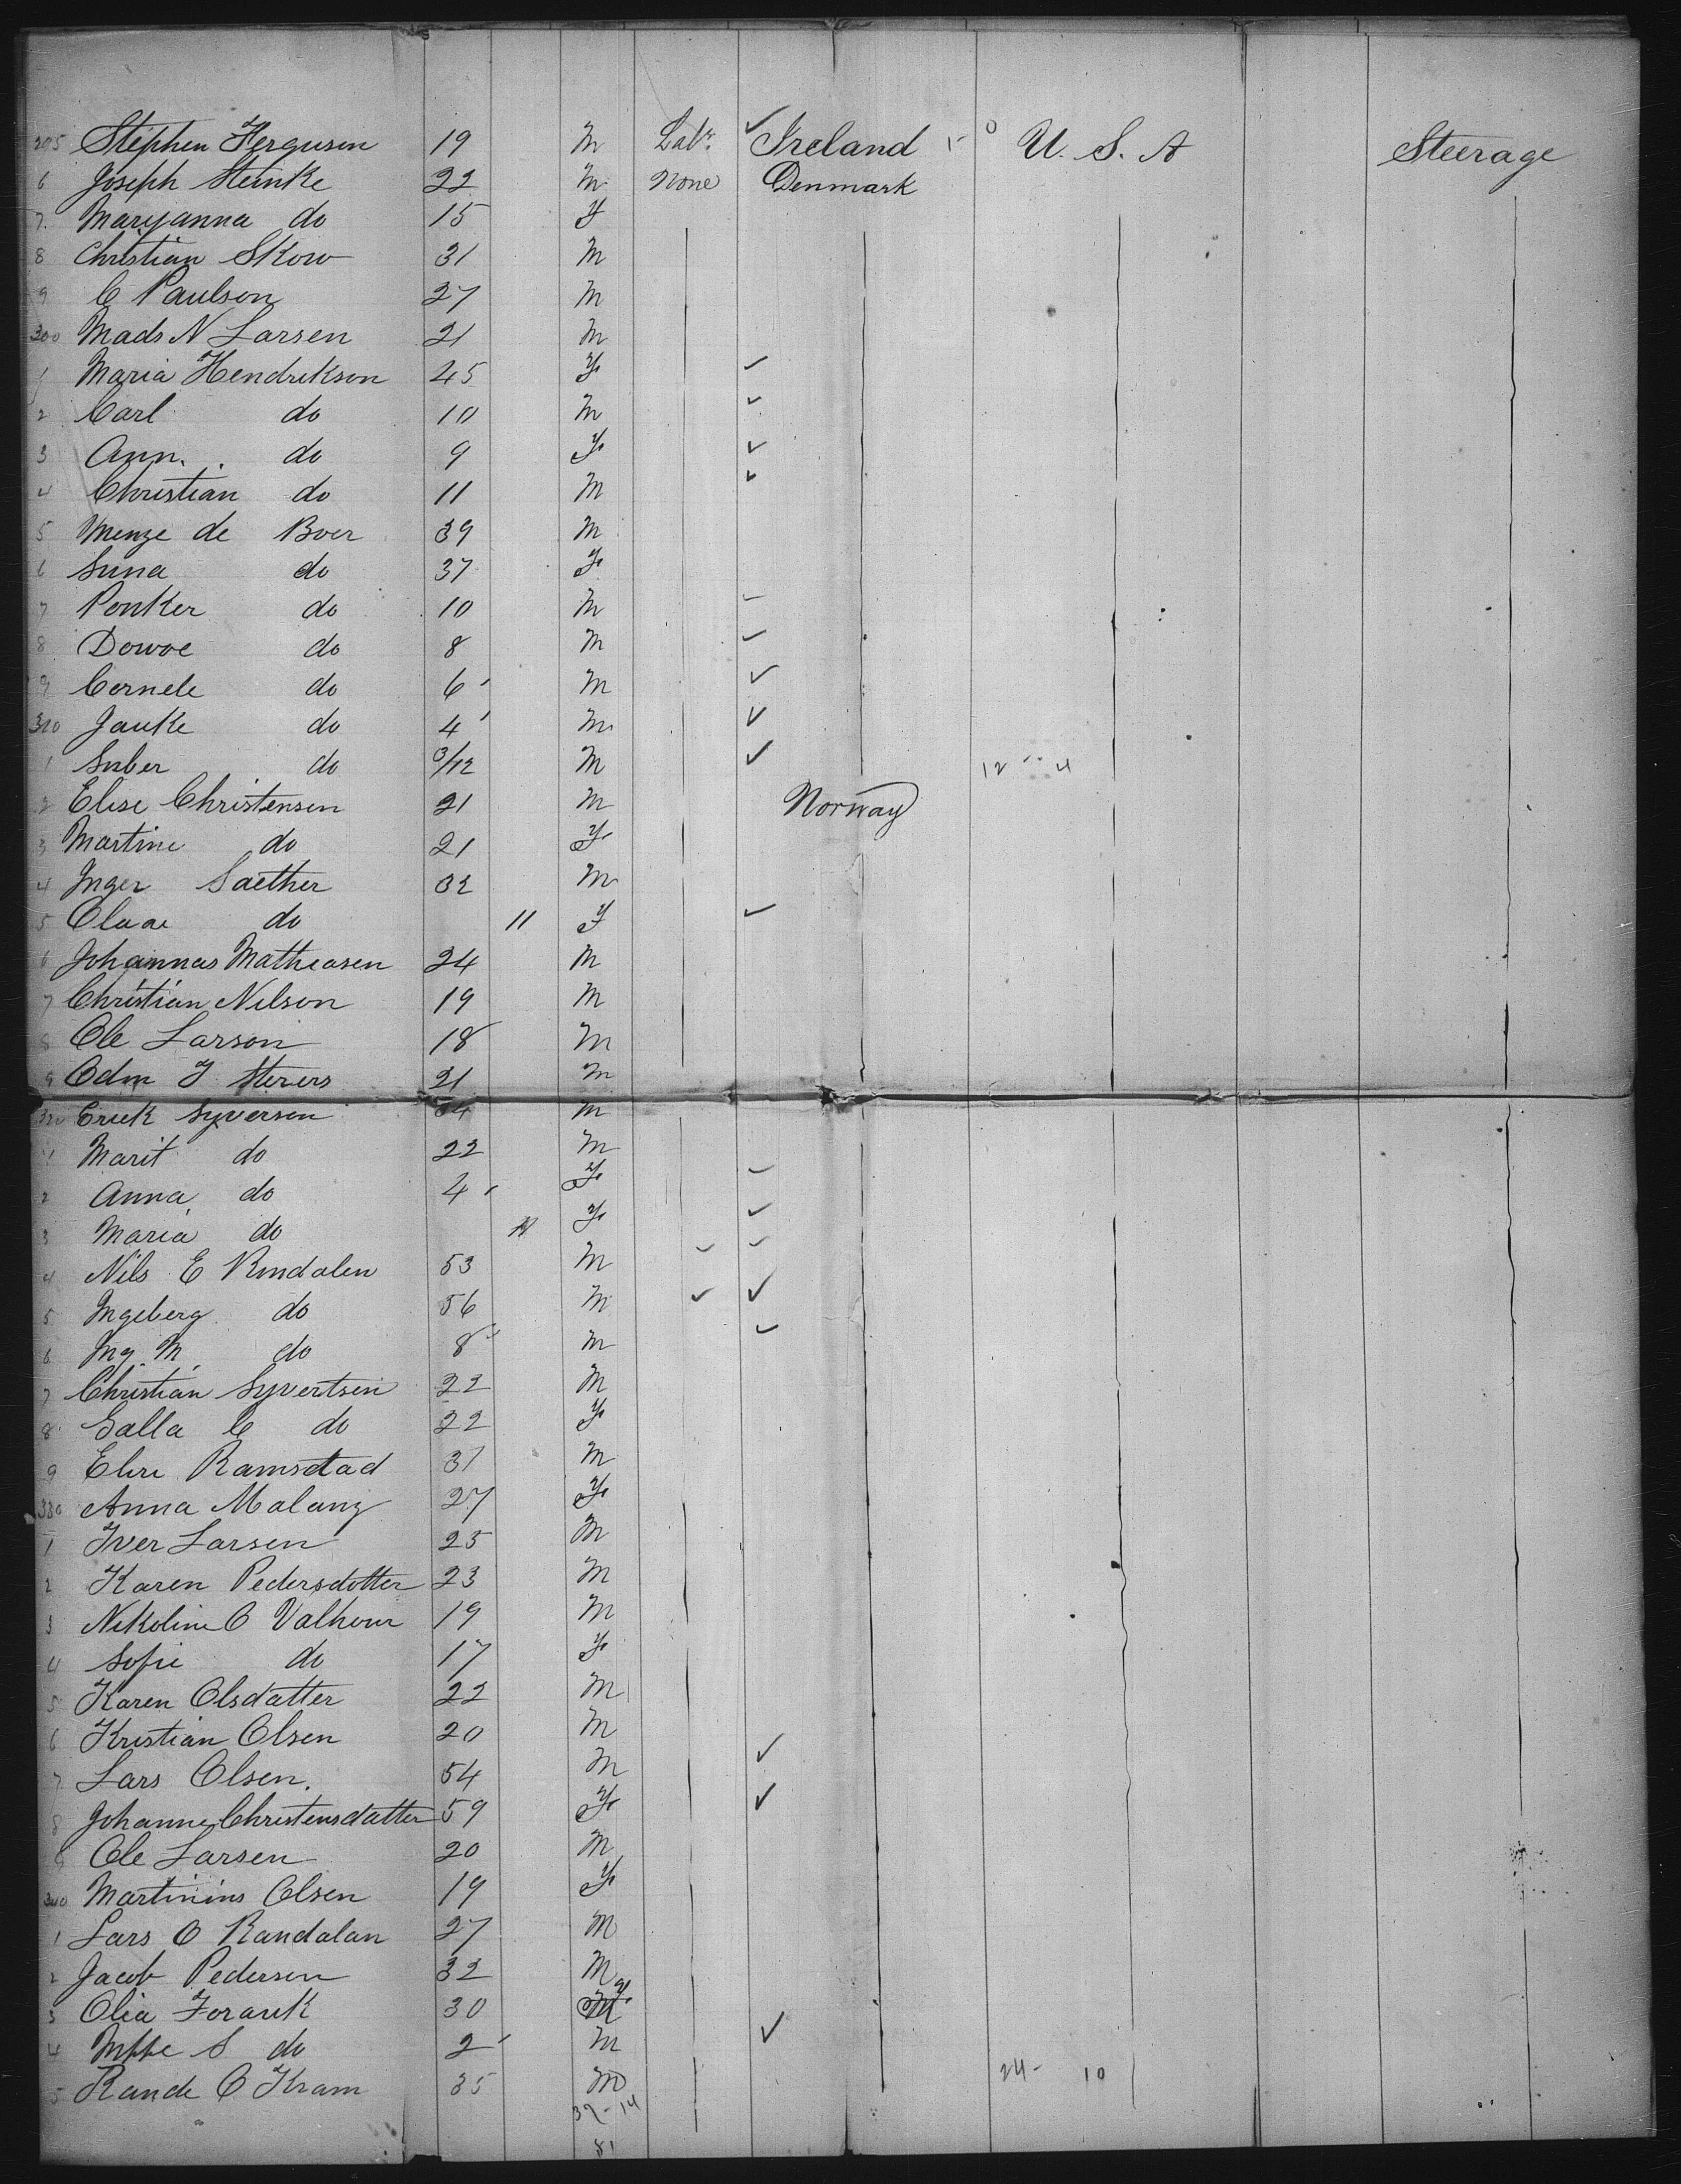 295 Stephen Ferguson 19 M Labr. Ireland U. S. A Steerage
6 Joseph Steinke 22 M None Denmark
7 Maryanna do 15 F
8 Christian Skow 31 M
9 C Paulson 27 M
300 Mads N Larsen 21 M
1 Maria Hendrikson 45 F
2 Carl do 10 M
3 Ann. do 9 F
4 Christian do 11 M
5 Menze de Boer 39 M
6 do 37 F
7 Ponker do 10 M
8 Dowoe do 8 M
9 Cornele do 6 M
310 Jauke do 4 M
1 do 3/12 M 12 4
2 Elise Christensen 21 M Norway
3 Martine do 21 F
4 Inger Saether 32 M
5 do 11 F
6 Johannes Matheasen 24 M
7 Christian Nilson 19 M
8 Ole Larson 18 M
9 21 M
320 Erick Syversen M
1 Marit do 22 M
2 Anna do 4 F
3 Maria do F
4 Nils E Rindalen 53 M
5 Ingeberg do 56 M
6 Ing. M do 8 M
7 Christian Syvertsen 22 M
8 C do 22 F
9 Ramstad 31 M
330 Anna Malang 27 F
1 Iver Larsen 25 M
2 Karen Pedersdotter 23 M
3 Nikoline O 19 M
4 Sofie do 17 F
5 Karen Olsdatter 22 M
6 Kristian Olsen 20 M
7 Lars Olsen. 54 M
8 Johanne Christensdatter 59 F
9 Ole Larsen 20 M
340 Martinius Olsen 19 F
1 Lars O Randalan 27 M
2 Jacob Pedersen 32 M
3 Olia 30 F
4 S do 2 M
5 Rande O Kram 35 M 24 - 10
37 - 14
81